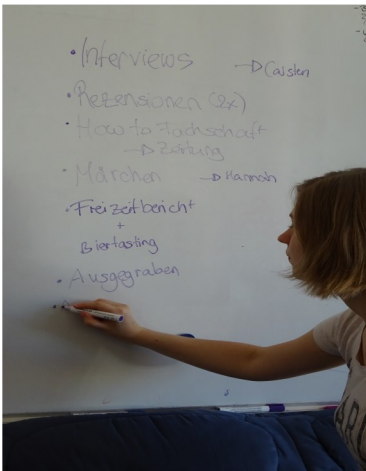 • Interviews → Carsten
• Rezensionen (2x)
• How to Fachschaft
→ Zeitung
• Märchen → Hannah
• Freizeitbericht
+
Biertasting
• Ausgegraben
•